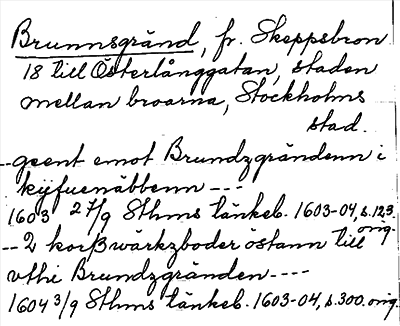 Brunnsgränd, fr. Skeppsbron
18 till Österlånggatan, staden
mellan broarna, Stockholms
stad.
--geent emot Brundzgrändenn i
kijfuenäbbenn ---
1603 27/9 Sthms tänkeb. 1603-04, s. 123. orig.
-- 2 korßwärkzboder östann till
vthi Brundzgränden ----
1604 3/9 Sthms tänkeb. 1603-04, s. 300. orig.